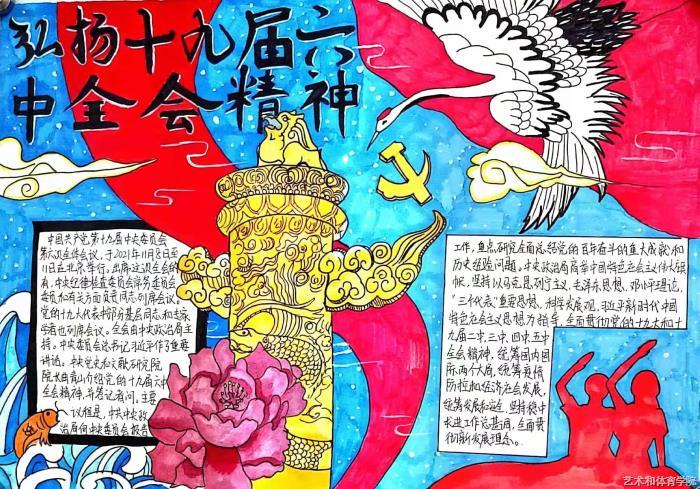 弘扬十九届六
中全会精神
中国共产党第十九届中央委员会
第六次全体会议，于2021年11月8日至
11日在北京举行。出席这次全会的
有，中央纪律检查委员会常务委员会
委员和有关方面负责同志列席会议。
党的十九大代表中部分基层同志和专家
学者也列席会议。全会由中央政治局主
持。中央委员会总书记习近平作了重要
讲话。中央党史和文献研究院
院长曲青山介绍党的十九届六中
全会精神，并答记者问。主要
议程是，中共中央政
治局向中央委员会报告
工作，重点研究全面总结党的百年奋斗的重大成就和
历史经验问题。中央政治局高举中国特色社会主义伟大旗
帜，坚持以马克思列宁主义、毛泽东思想、邓小平理论、
"三个代表"重要思想、科学发展观、习近平新时代中国
特色社会主义思想为指导，全面贯彻党的十九大和十
九届二中、三中、四中、五中
全会精神，统筹国内国
际两个大局，统筹疫情
防控和经济社会发展，
统筹发展和安全，坚持稳中
求进工作总基调，全面贯
彻新发展理念。
艺术和体育学院